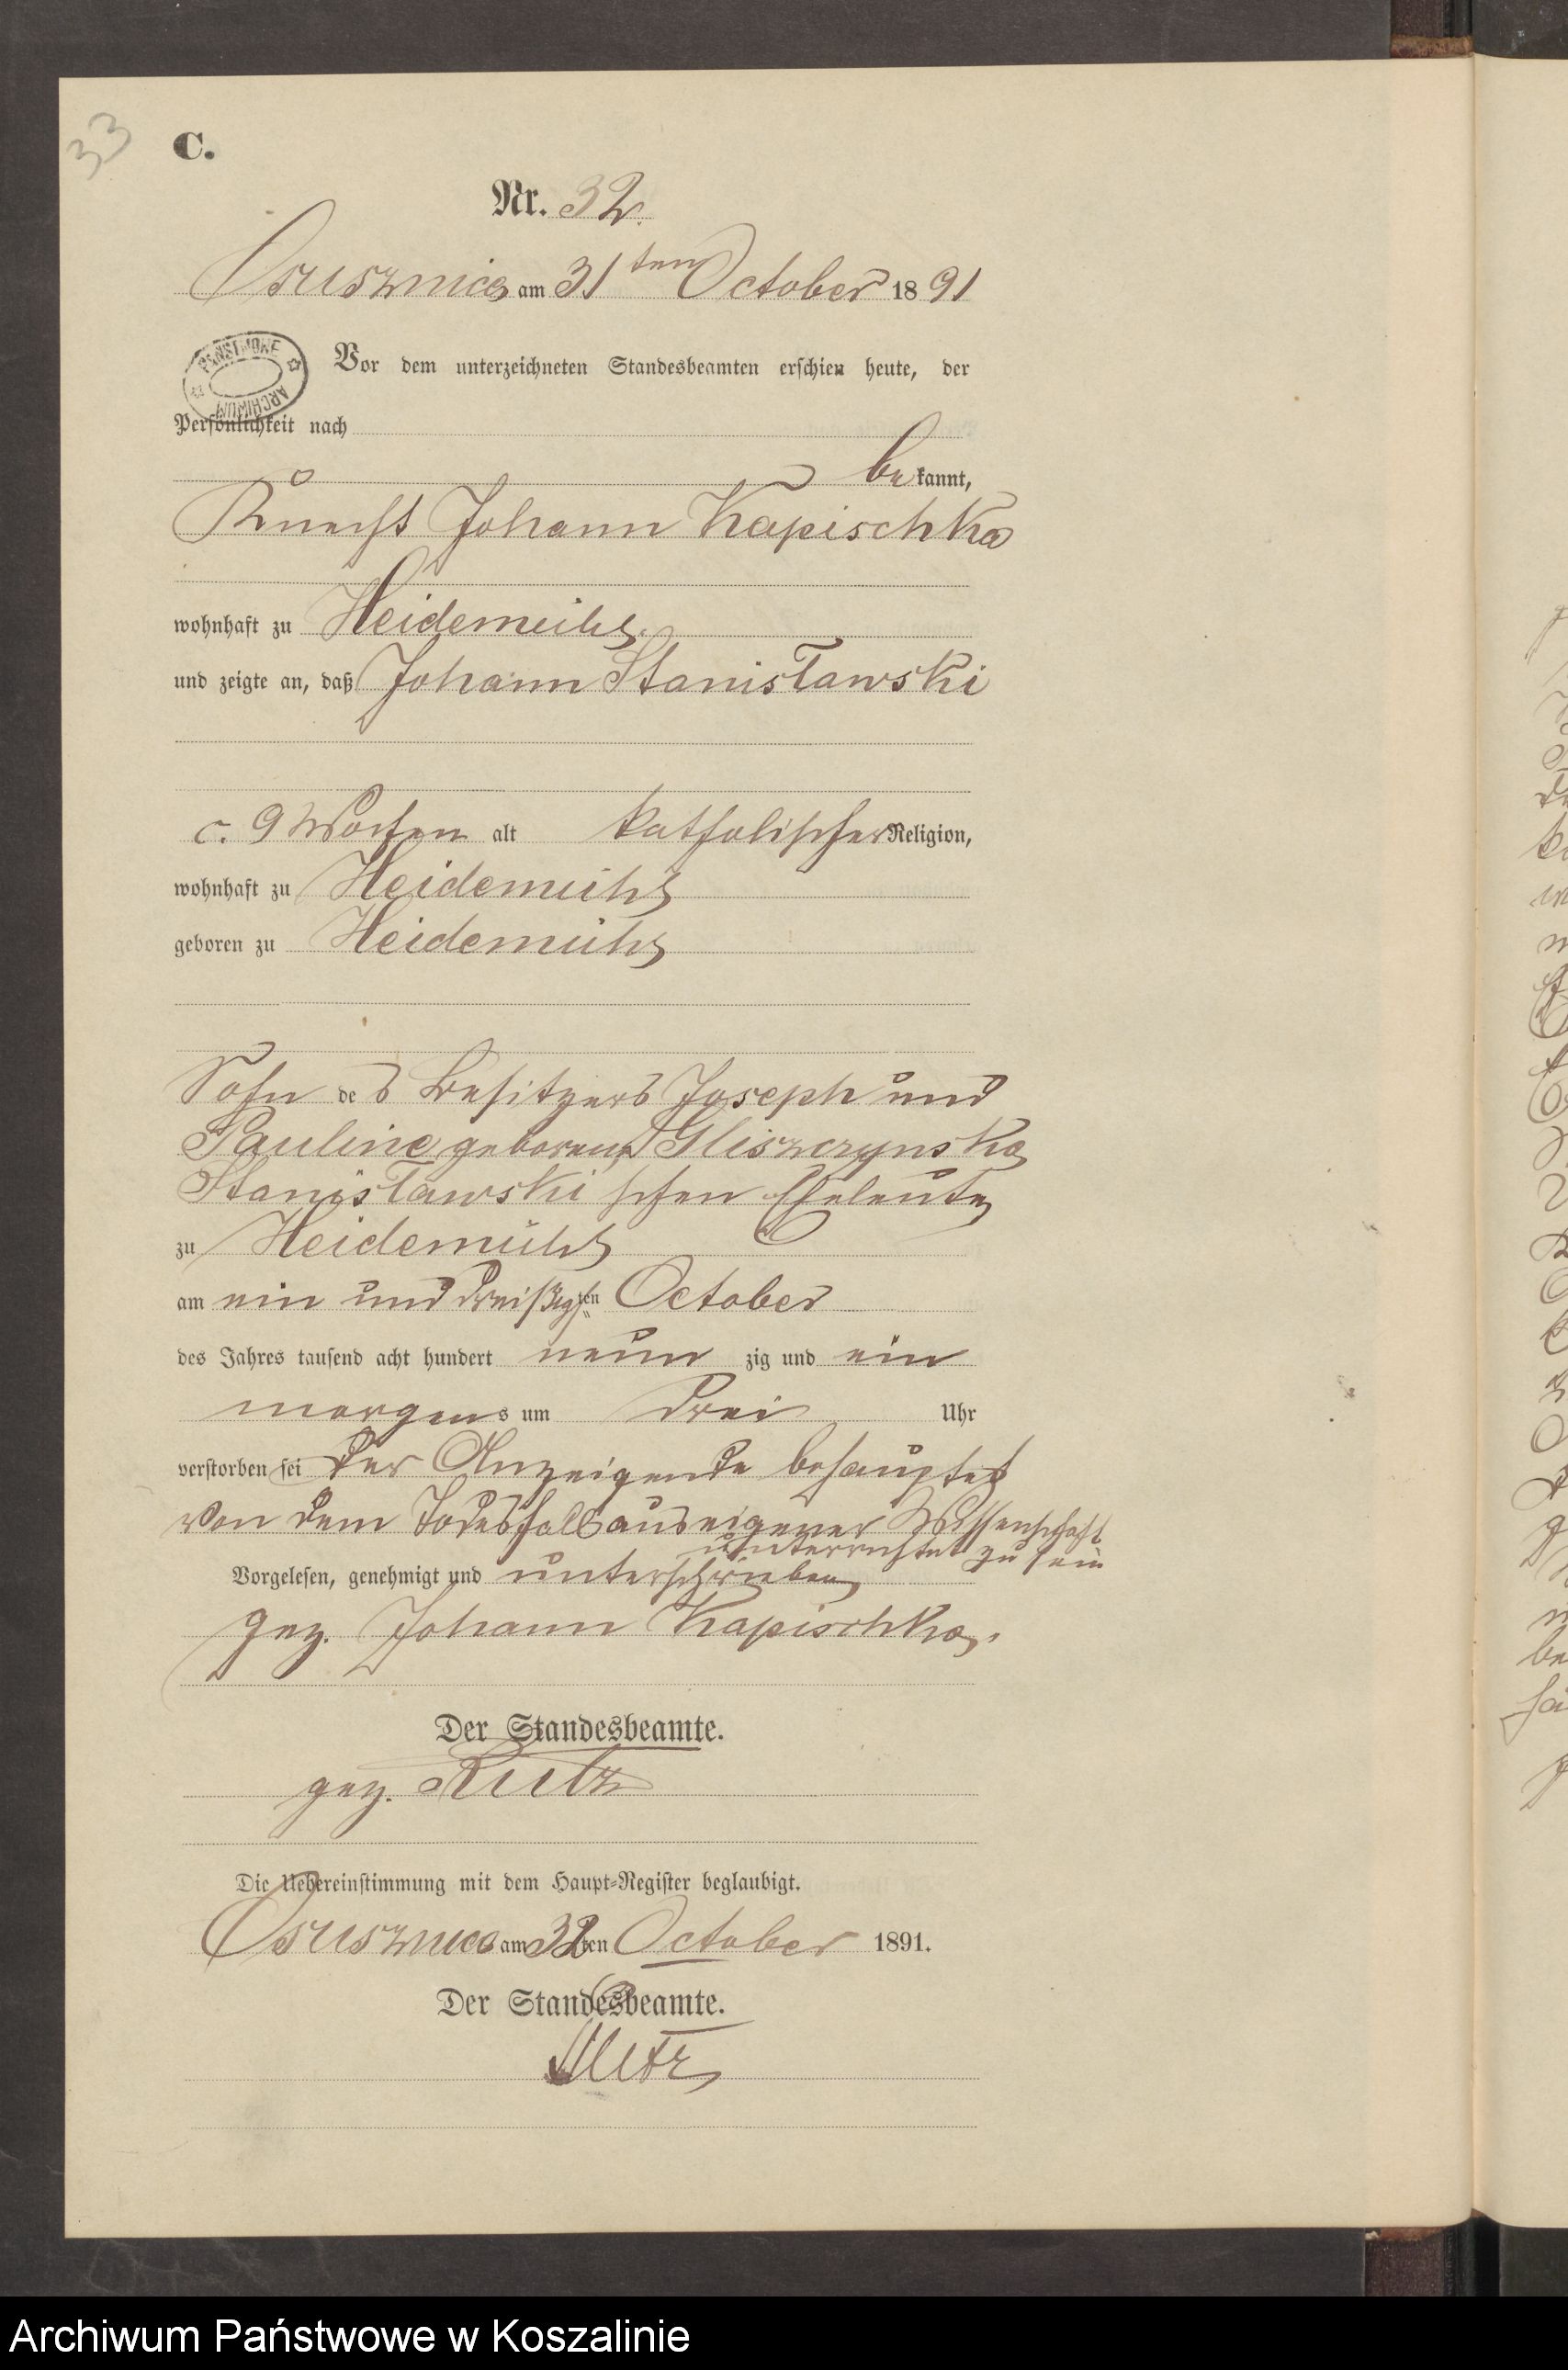 33
C.
Nr. 32.
Osusznica am 31ten October 1891
PAŃSTWOWE ARCHIWUM
Vor dem unterzeichneten Standesbeamten erschien heute, der
Persönlichkeit nach
bekannt,
Knecht Johann Kapischka
wohnhaft zu Heidemühl
und zeigte an, daß Johann Stanisławski
c. 9 Wochen alt katholischer Religion,
wohnhaft zu Heidemühl
geboren zu Heidemühl
Sohn des Besitzers Joseph und
Pauline geborene Gliszczynska
Stanisławski'schen Eheleute
zu Heidemühl
am ein und dreißigsten October
des Jahres tausend acht hundert neun zig und ein
morgens um drei Uhr
verstorben sei der Anzeigende behauptet
von dem Todesfall aus eigener Wissenschaft
unterrichtet zu sein
Vorgelesen, genehmigt und unterschrieben
gez. Johann Kapischka.
Der Standesbeamte.
gez.
Die Uebereinstimmung mit dem Haupt-Register beglaubigt.
Osusznica am ten October 1891.
Der Standesbeamte.
Archiwum Państwowe w Koszalinie